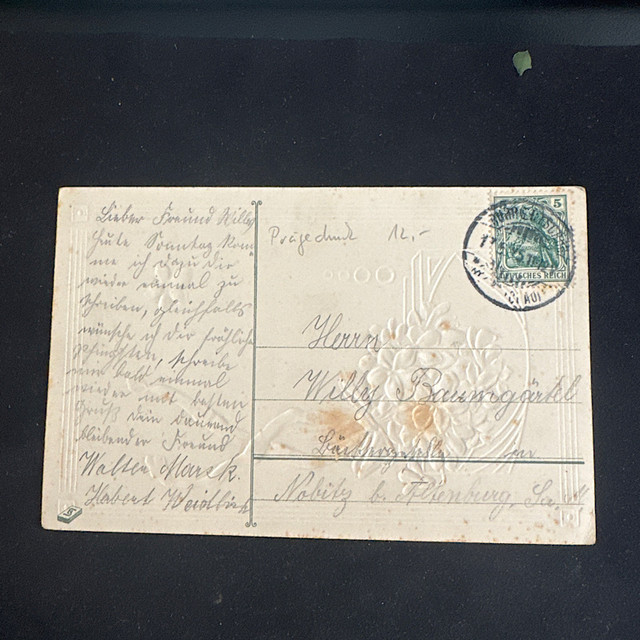 Lieber Freund Willy
Heute Sonntag kom
me ich dazu dir
wieder einmal zu
schreiben, gleichfalls
wünsche ich dir fröhliche
Pfingsten, schreibe
nun bald einmal
wieder mit besten
Gruß dein dauernd
bleibender Freund
Walter
Prägedruck 12,-
5
DEUTSCHES REICH
Herrn
Willy Baumgärtel
in
Nobitz b. Altenburg, S.-A.